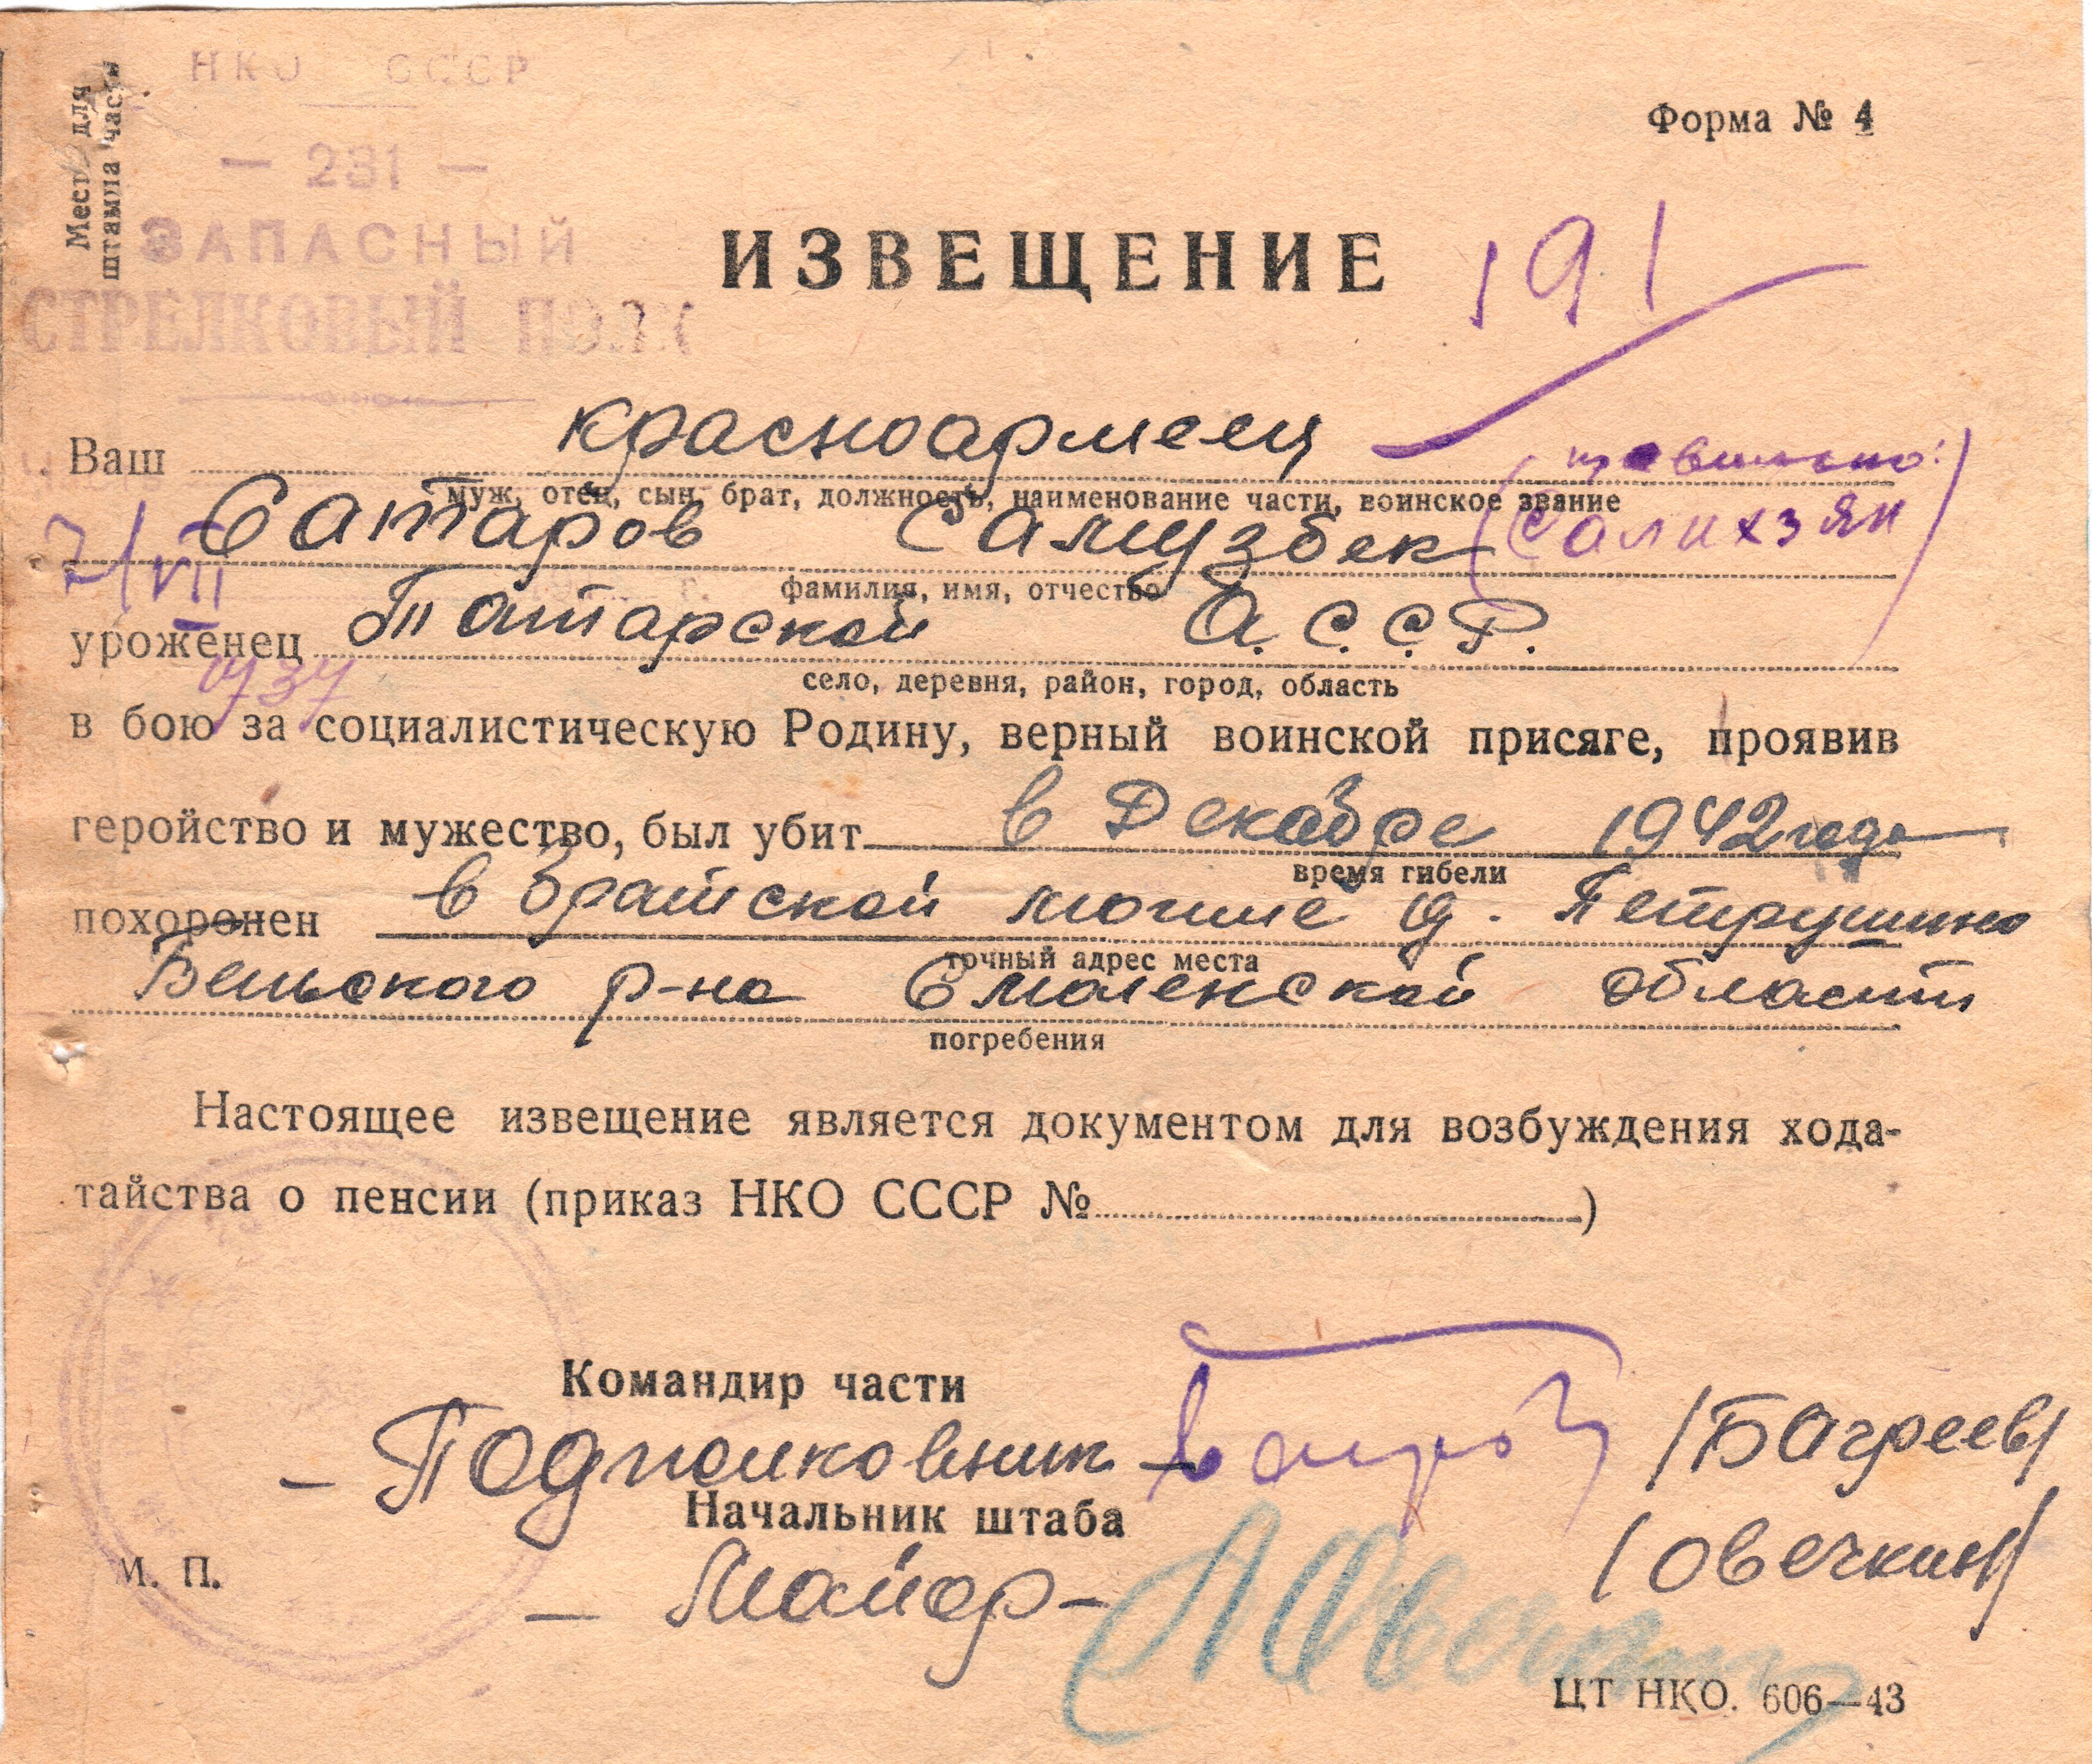 Место для
штампа части
НКО СССР
— 231 —
ЗАПАСНЫЙ
СТРЕЛКОВЫЙ ПОЛК
Форма № 4
ИЗВЕЩЕНИЕ
191
Ваш красноармеец
муж, отец, сын, брат, должность, наименование части, воинское звание
(правильно:
Сатаров Самузбек Салихзян)
7/VII
фамилия, имя, отчество
уроженец Татарской А.С.С.Р.
село, деревня, район, город, область
в бою за социалистическую Родину, верный воинской присяге, проявив
геройство и мужество, был убит в Декабре 1942 года
время гибели
похоронен в братской могиле д. Петрушино
точный адрес места
Бельского р-на Смоленской области
погребения
Настоящее извещение является документом для возбуждения хода-
тайства о пенсии (приказ НКО СССР № )
Командир части
— Подполковник — /Багреев/
Начальник штаба
— Майор — /Овечкин/
М. П.
ЦТ НКО. 606—43